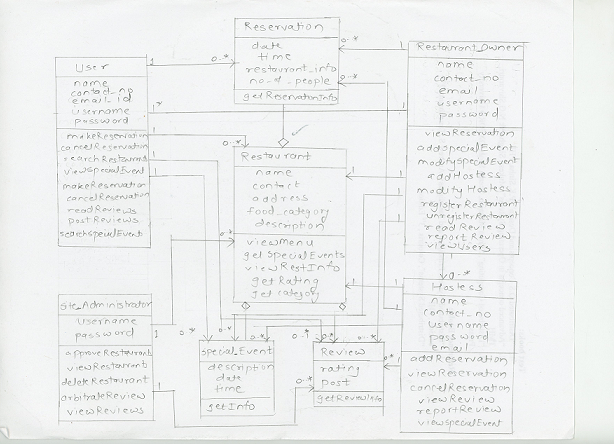 Reservation
date
time
restaurant_info
no_of_people
getReservationInfo
User
name
contact_no
email_id
username
password
makeReservation
cancelReservation
searchRestaurant
viewSpecialEvent
makeReservation
cancelReservation
readReviews
postReviews
searchSpecialEvent
Restaurant_Owner
name
contact_no
email
username
password
viewReservation
addSpecialEvent
modifySpecialEvent
addHostess
modify Hostess
registerRestaurant
unregisterRestaurant
readReview
reportReview
viewUsers
Restaurant
name
contact
address
food_category
description
viewMenu
getSpecialEvents
viewRestInfo
getRating
getcategory
Site_Administrator
username
password
approveRestaurant
viewRestaurant
deleteRestaurant
arbitrateReview
viewReviews
specialEvent
description
date
time
getInfo
Review
rating
post
getReviewInfo
Hostess
name
contact_no
username
password
email
addReservation
viewReservation
cancelReservation
viewReview
reportReview
viewSpecialEvent
1
0..*
0..*
1
0..*
1
1*
1
1
0..*
1
1
1
1
0..*
1
0..*
1
0..*
0..*
0..*
0..*
0..*
0..*
1
1